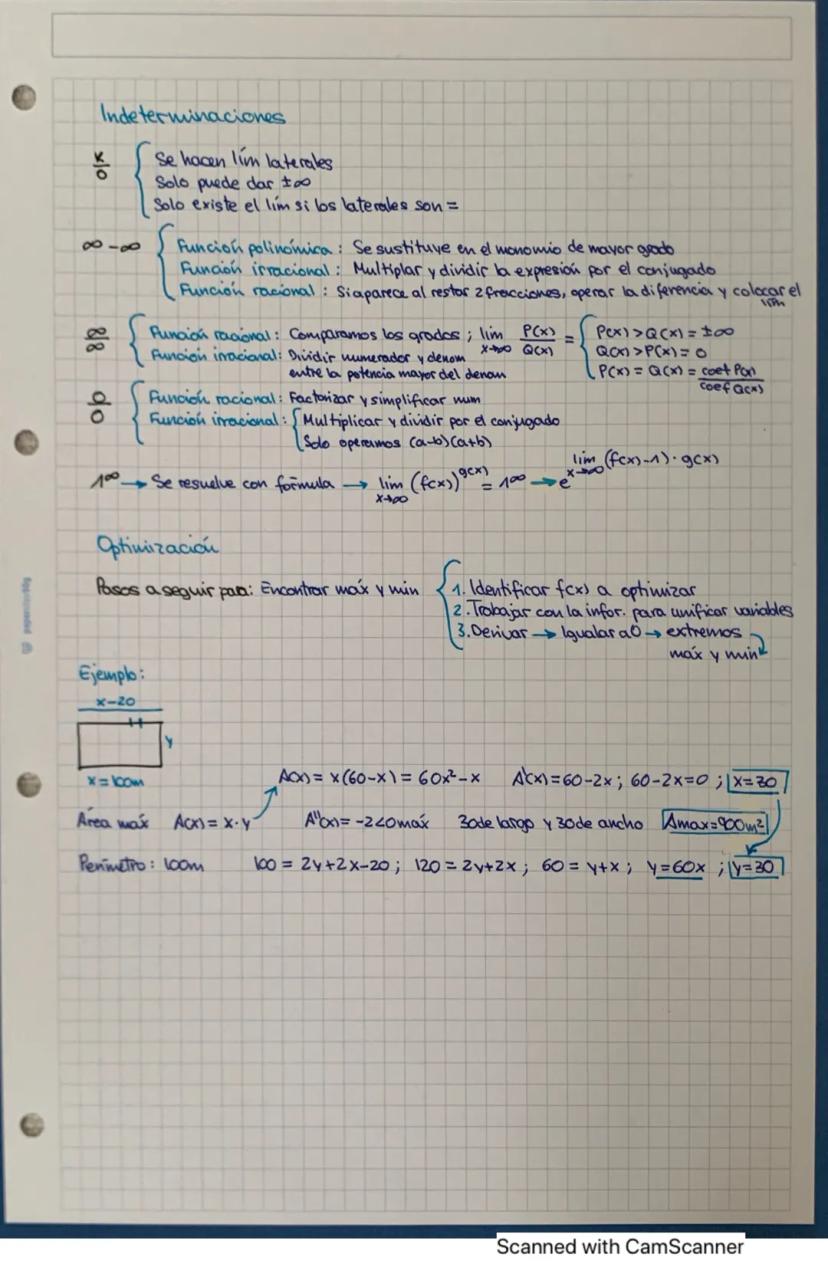 Indeterminaciones
K/0 { Se hacen lím laterales
Solo puede dar ±∞
Solo existe el lím si los laterales son =
∞-∞ { Función polinómica: Se sustituye en el monomio de mayor grado
Función irracional: Multiplar y dividir la expresión por el conjugado
Función racional: Si aparece al restar 2 fracciones, operar la diferencia y colocar el lím
∞/∞ { Función racional: Comparamos los grados; lim x→∞ P(x)/Q(x) = { P(x)>Q(x)=±∞
Función irracional: Dividir numerador y denom Q(x)>P(x)=0
entre la potencia mayor del denom P(x)=Q(x)= coef P(x)/coef Q(x)
0/0 { Función racional: Factorizar y simplificar num
Función irracional: { Multiplicar y dividir por el conjugado
Solo operamos (a-b)(a+b)
1^∞ → Se resuelve con fórmula → lim x→∞ (f(x))^g(x) = 1^∞ → e^lim x→∞ (f(x)-1)·g(x)
Optimización
Pasos a seguir para: Encontrar máx y min { 1. Identificar f(x) a optimizar
2. Trabajar con la infor. para unificar variables
3. Derivar → Igualar a 0 → extremos
máx y min
Ejemplo:
x-20
y
x=100m
A(x)= x(60-x)= 60x²-x A'(x)=60-2x; 60-2x=0; x=30
Área máx A(x)= x·y A''(x)= -2<0 máx 30 de largo y 30 de ancho Amax=900m²
Perímetro: 100m 100 = 2y+2x-20; 120 = 2y+2x; 60 = y+x; y=60x; y=30
Scanned with CamScanner